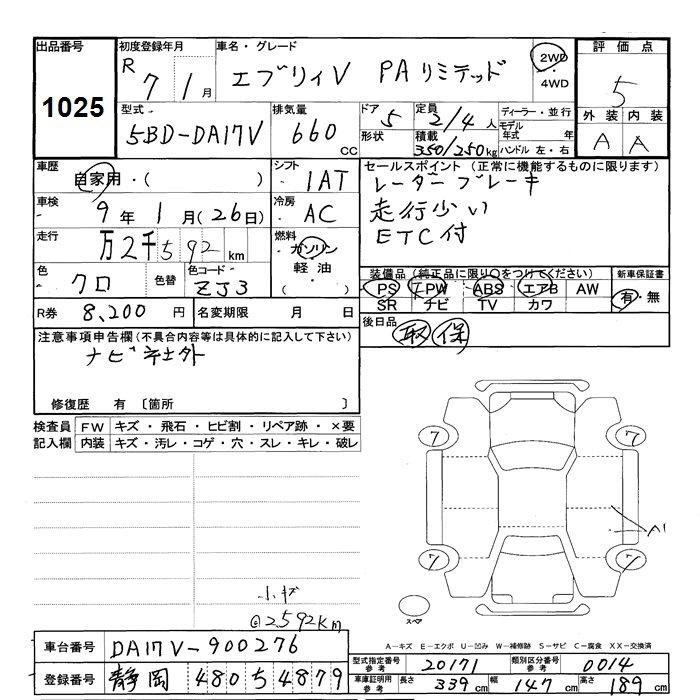 出品番号
1025
初度登録年月
R 7年 1月
車名・グレード
エブリィV PAリミテッド
2WD
・
4WD
評価点
5
外装 内装
A A
型式
5BD-DA17V
排気量
660 cc
ドア 5
形状
定員 2/4人
積載 350/250kg
ディーラー・並行
モデル年式 年
ハンドル 左・右
車歴
自家用・( )
シフト
1AT
車検
9年 1月(26日)
冷房
AC
走行
万2千592km
燃料
ガソリン
軽油・
( )
色
クロ
色替
色コード
ZJ3
R券 8,200円
名変期限 月 日
セールスポイント(正常に機能するものに限ります)
レーダーブレーキ
走行少い
ETC付
装備品(純正品に限り○をつけてください)
PS PW ABS エアB AW
SR ナビ TV カワ
新車保証書
有・無
後日品
取 保
注意事項申告欄(不具合内容等は具体的に記入して下さい)
ナビ社外
修復歴 有〔箇所 〕
検査員記入欄
FW キズ・飛石・ヒビ割・リペア跡・×要
内装 キズ・汚レ・コゲ・穴・スレ・キレ・破レ
小キズ
@2,592km
7 7
A1
7 7
スペア
A-キズ E-エクボ U-凹み W-補修跡 S-サビ C-腐食 XX-交換済
車台番号 DA17V-900276
登録番号 静岡 480 5 4879
型式指定番号 参考 20171 類別区分番号 参考 0014
車庫証明用 参考 長さ 339cm 幅 147cm 高さ 189cm